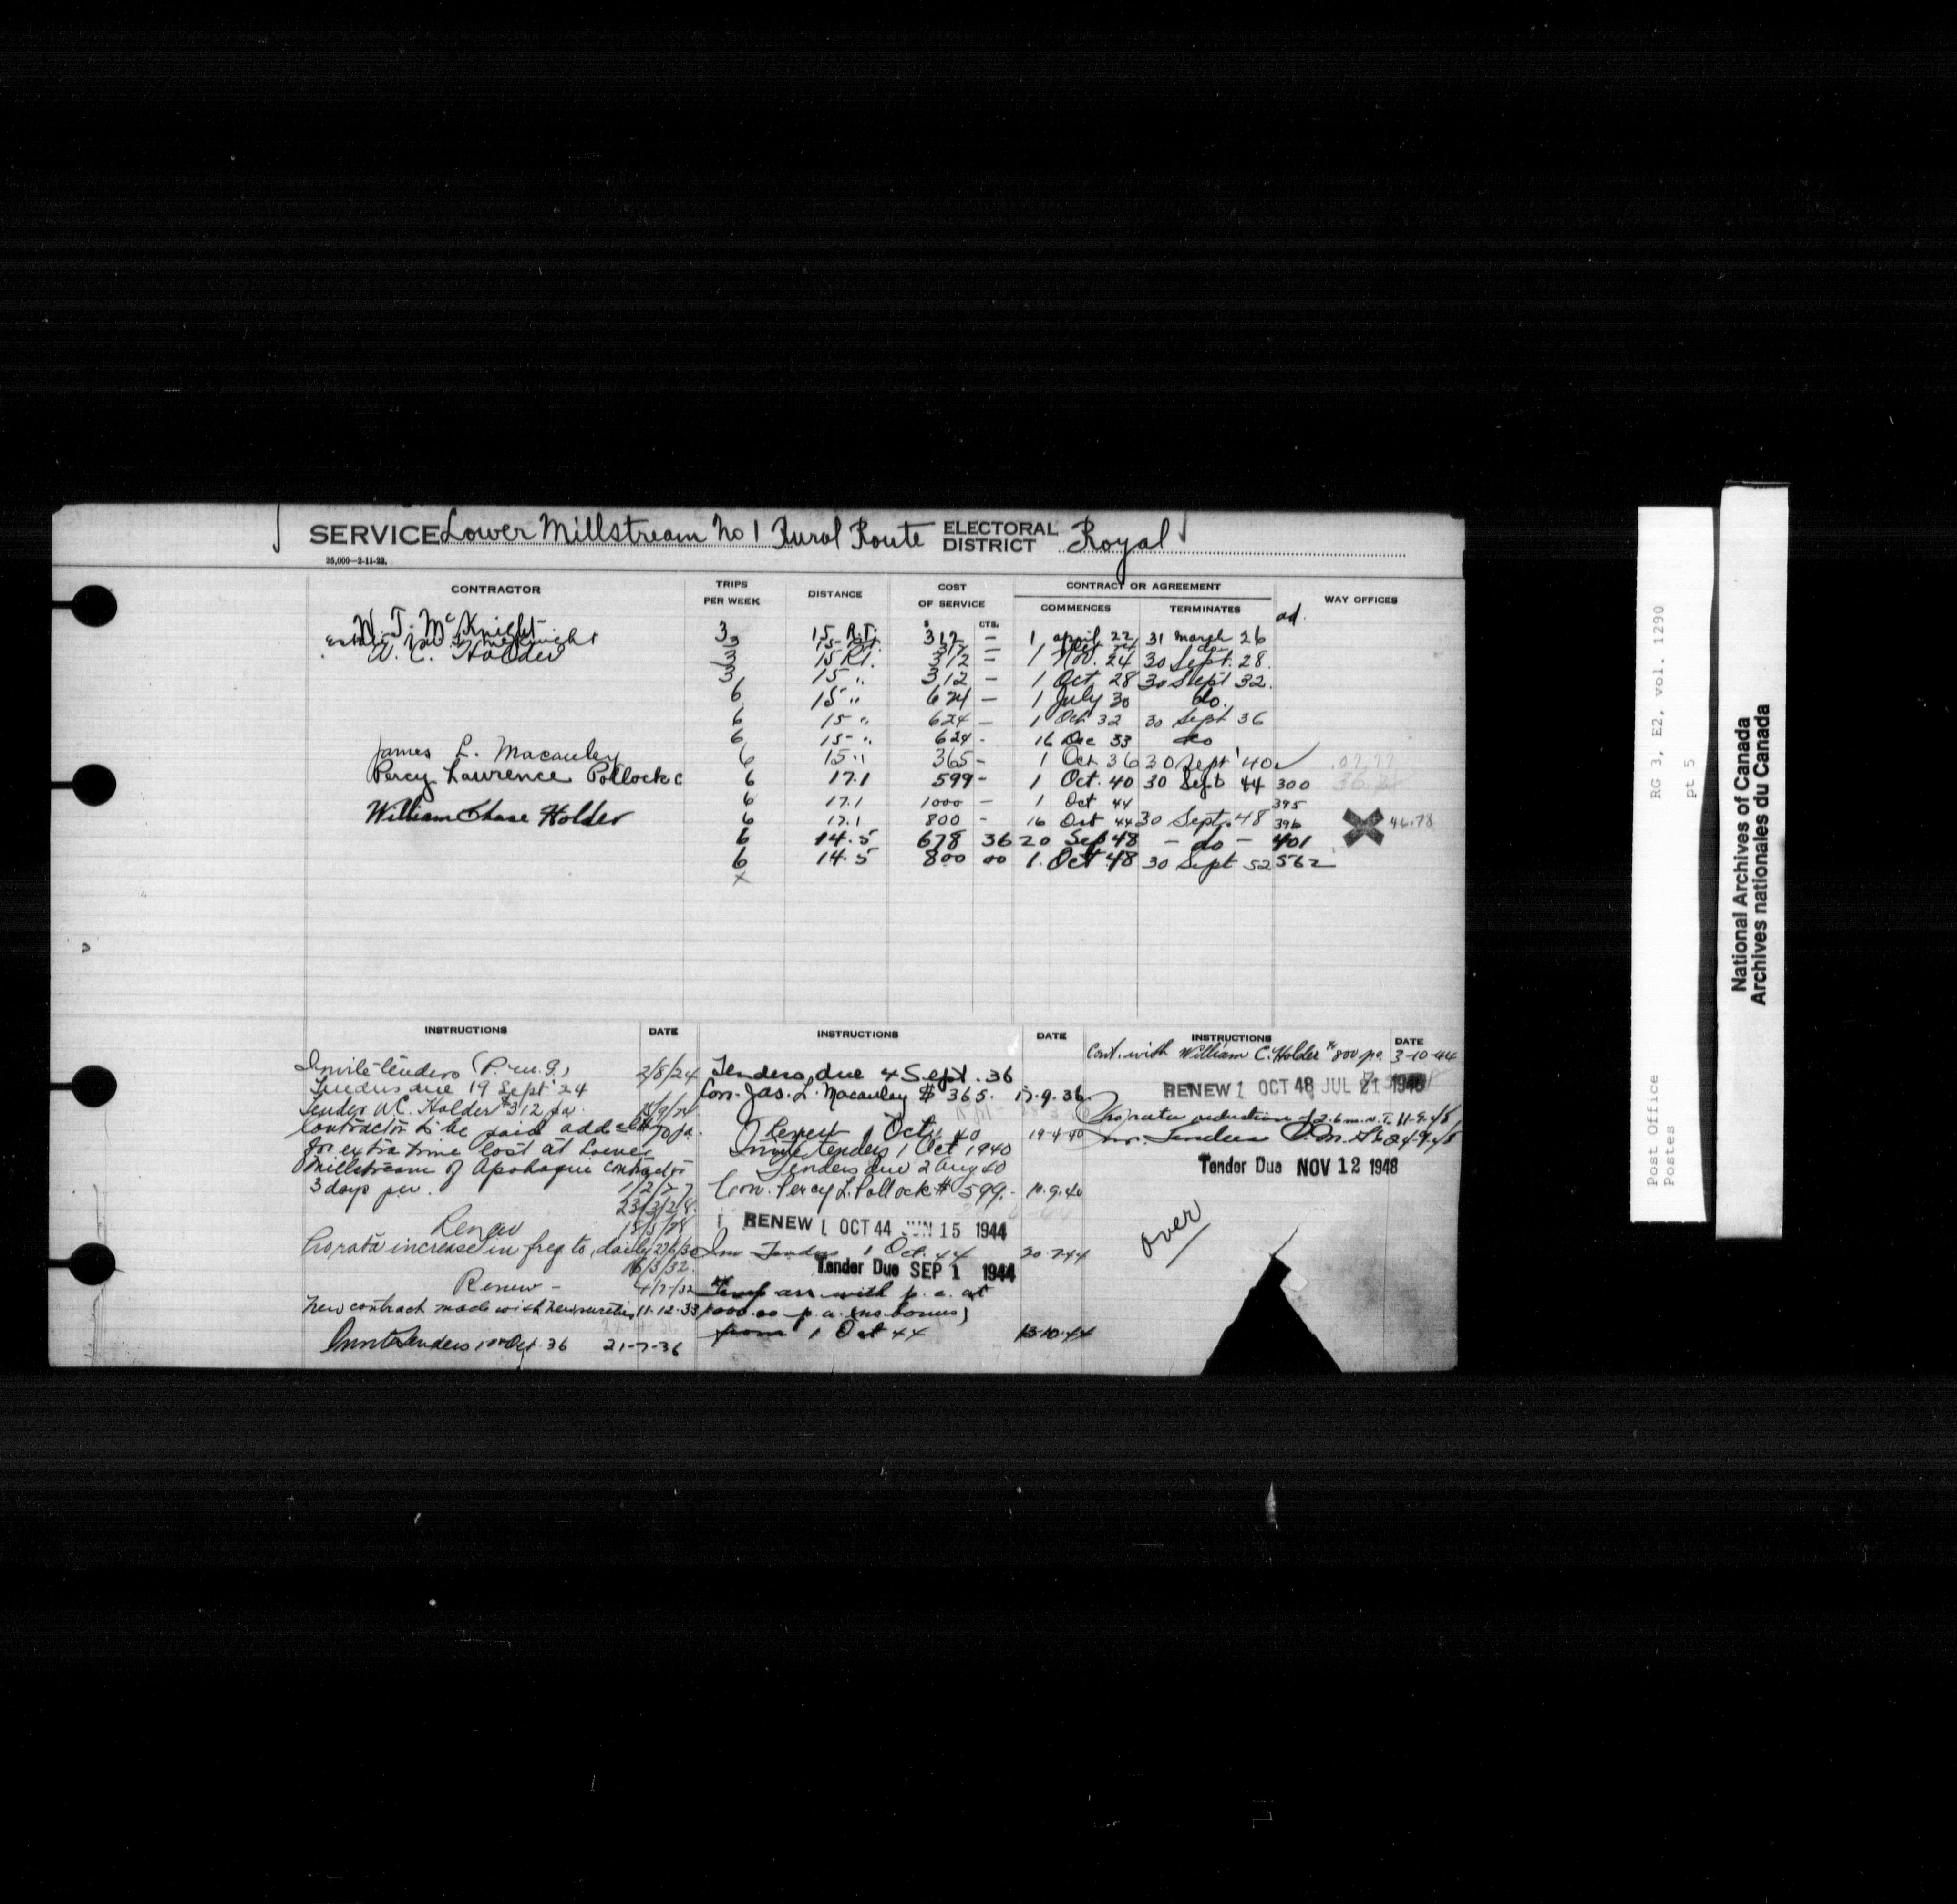 SERVICE Lower Millstream No 1 Rural Route ELECTORAL DISTRICT Royal
25,000—2-11-22.
CONTRACTOR TRIPS PER WEEK DISTANCE COST OF SERVICE CONTRACT OR AGREEMENT WAY OFFICES
$ CTS. COMMENCES TERMINATES ad.
W. J. McKnight 3 15 R.T. 312 — 1 April 22 31 March 26
McKnight 3 15 RT. 312 do
W. C. Holder 3 15 RT. 312 — 1 Nov. 24 30 Sept. 28.
3 15 " 312 — 1 Oct 28 30 Sept 32.
6 15 " 624 — 1 July 30 do.
6 15 " 624 — 1 Oct 32 30 Sept 36
6 15 " 624 - 16 Dec 33 do
James L. Macauley 6 15 " 365 - 1 Oct 36 30 Sept '40
Percy Lawrence Pollock c 6 17.1 599 - 1 Oct. 40 30 Sept 44 300
6 17.1 1000 — 1 Oct 44 395
William Chase Holder 6 17.1 800 - 16 Oct 44 30 Sept. 48 396 46.78
6 14.5 678 36 20 Sep 48 — do — 401
6 14.5 800 00 1. Oct 48 30 Sept 52 562
x
INSTRUCTIONS DATE
Invite tenders (P.M.G.) 2/8/24
Tenders due 19 Sept '24
Tender W.C. Holder $312 pa.
Contractor to be paid add
for extra time lost at Lower
Millstream of Apohaqui contractor
3 days per. 1/2/27
23/3/28.
Renew 18/5/28
Pro rata increase in freq to daily 27/6/30
16/3/32.
Renew -
New contract made with new sureties 11-12-33
Invite tenders 1st Oct. 36 21-7-36
INSTRUCTIONS DATE
Tenders due 4 Sept. 36
Con. Jas. L. Macauley $365. 17.9.36
Renew 1 Oct. 40 19-4-40
Invite tenders 1 Oct 1940
Tenders due 2 Aug 40
Con. Percy L. Pollock $599.- 10.9.40
RENEW 1 OCT 44 JUN 15 1944
Inv Tenders 1 Oct. 44 20-7-44
Tender Due SEP 1 1944
Temp arr with p. c. at
1000.00 p.a. (no bonus)
from 1 Oct 44 13-10-44
INSTRUCTIONS DATE
Cont. with William C. Holder $800 pa 3-10-44
RENEW 1 OCT 48 JUL 21 1948
Pro rata reduction of 2.6 m. R.T. 11-9-48
Inv. Tenders 24-9-48
Tender Due NOV 12 1948
over
Post Office RG 3, E2, vol. 1290
Postes pt 5
National Archives of Canada
Archives nationales du Canada